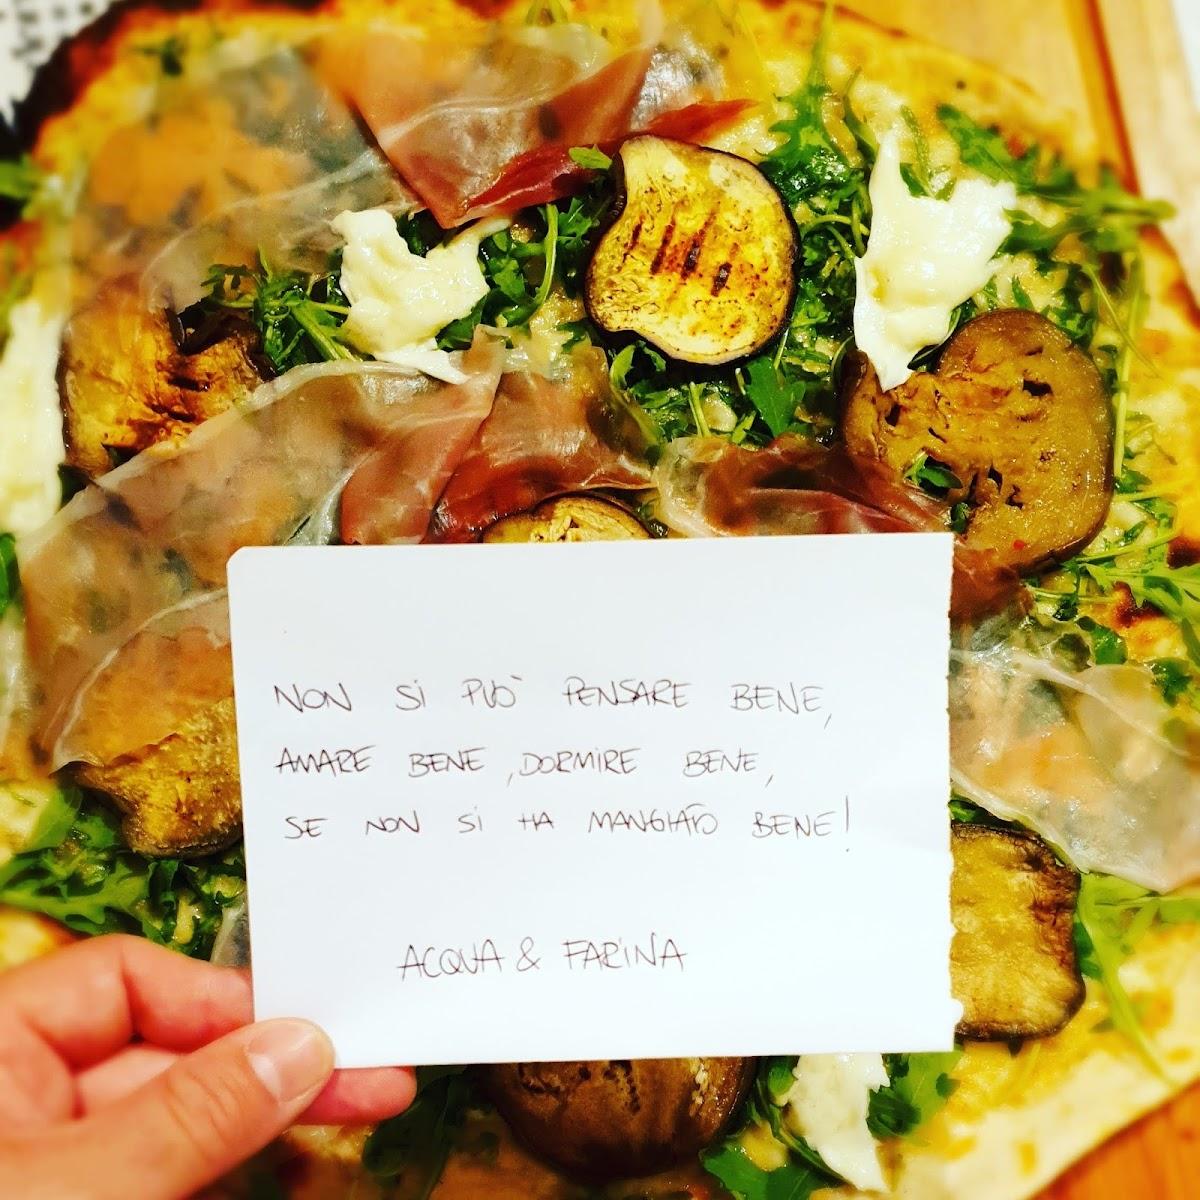 NON SI PUÒ PENSARE BENE,
AMARE BENE, DORMIRE BENE,
SE NON SI HA MANGIATO BENE!
ACQUA & FARINA